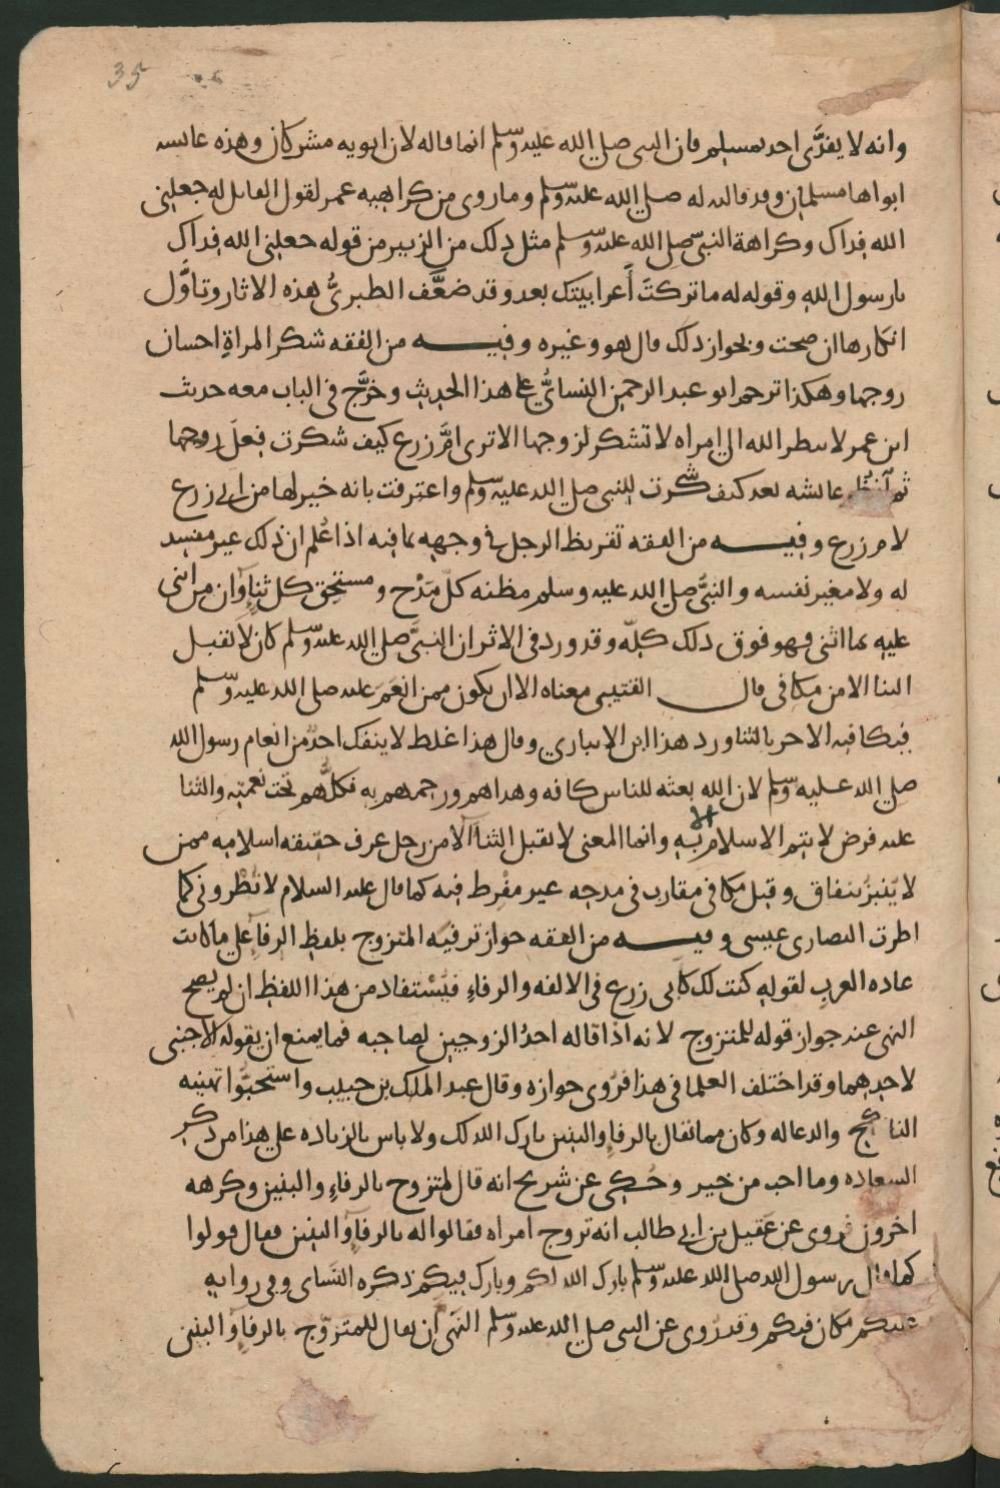 35
وانه لا يفدَّى احد بمسلم فان النبى صلى الله عليه وسلم انما قاله لان ابويه مشركان وهذه عائشه
ابواها مسلمان وقد قالت له صلى الله عليه وسلم وما روى من كراهيه عمر لقول القائل له جعلنى
الله فداك وكراهة النبىّ صلى الله عليه وسلم مثل ذلك من الزبير من قوله جعلنى الله فداك
يا رسول الله وقوله له ما تركتَ أَعرابيتك بعد وقد ضعَّف الطبرىُّ هذه الاثار وتأوَّل
انكارها ان صحت وبجواز ذلك قال هو وغيره وفيه من الفقه شكر المراةِ احسان
زوجها وهكذا ترجم ابو عبد الرحمن النسائىُّ على هذا الحديث وخرَّج فى الباب معه حديث
ابن عمر لا ينظر الله الى امراه لا تشكر لزوجها الا ترى امَّ زرع كيف شكرت فِعلَ زوجها
ثم عائشه بعد كيف شكرت للنبى صلى الله عليه وسلم واعترفت بانه خير لها من ابى زرع
لام زرع وفيه من الفقه تقريظ الرجل فى وجهه بما فيه اذا عُلم ان ذلك غير مفسد
له ولا مغير نفسه والنبىّ صلى الله عليه وسلم مظنه كلّ مَدْح ومستحِق كل ثناءٍ وان من اثنى
عليه بما اثنى فهو فوق ذلك كلّه وقد ورد فى الاثر ان النبىَّ صلى الله عليه وسلم كان لا يقبل
الثنا الا من مكافى قال القتيبى معناه الا ان يكون ممن انعَمَ عليه صلى الله عليه وسلم
فيكافيه الاخر بالثنا ورد هذا ابن الانبارى وقال هذا غلط لا ينفك احدٌ من انعام رسول الله
صلى الله عليه وسلم لان الله بعثه للناس كافه وهداهم ورحمهم به فكلُّهم تحت نعمته والثنا
عليه فرض لا يتم الاسلام الا به وانما المعنى لا يقبل الثنآ الا من رجل عرف حقيقه اسلامه ممن
لا يُنبزُ بنفاق وقيل مكافى مقارب فى مدحه غير مفْرِط فيه كما قال عليه السلام لا تُطْرونى كما
اطرت النصارى عيسى وفيه من الفقه جواز ترفيه المتزوج بلفظ الرفآءِ على ما كانت
عاده العربِ لقوله كنت لك كابى زرع فى الالفه والرفاءِ فيُسْتفاد من هذا اللفظ ان لم يصح
النهى عنه جواز قوله للمتزوج لانه اذا قاله احدُ الزوجين لصاحبه فما يمنع ان يقوله الاجنبى
لاحدهما وقد اختلف العلما فى هذا فرُوى جوازه وقال عبد الملك بن حبيب واستحبّوا تهنيه
الناكح والدعا له وكان مما يقال بالرفاءِ والبنين بارك الله لك ولا باس بالزياده على هذا من ذكر
السعاده وما احب من خير وحُكى عن شريح انه قال لمتزوج بالرفاءِ والبنين وكرهه
اخرون فروى عن عَقيل بن ابى طالب انه تزوج امراه فقالوا له بالرفآءِ والبنين فقال قولوا
كما قال رسول الله صلى الله عليه وسلم بارك الله لكم وبارك فيكم ذكره النسَاى وفى روايه
عليكم مكان فيكم وقد رُوى عن النبى صلى الله عليه وسلم النهىُ ان يقال للمتزوّج بالرفآءِ والبنين